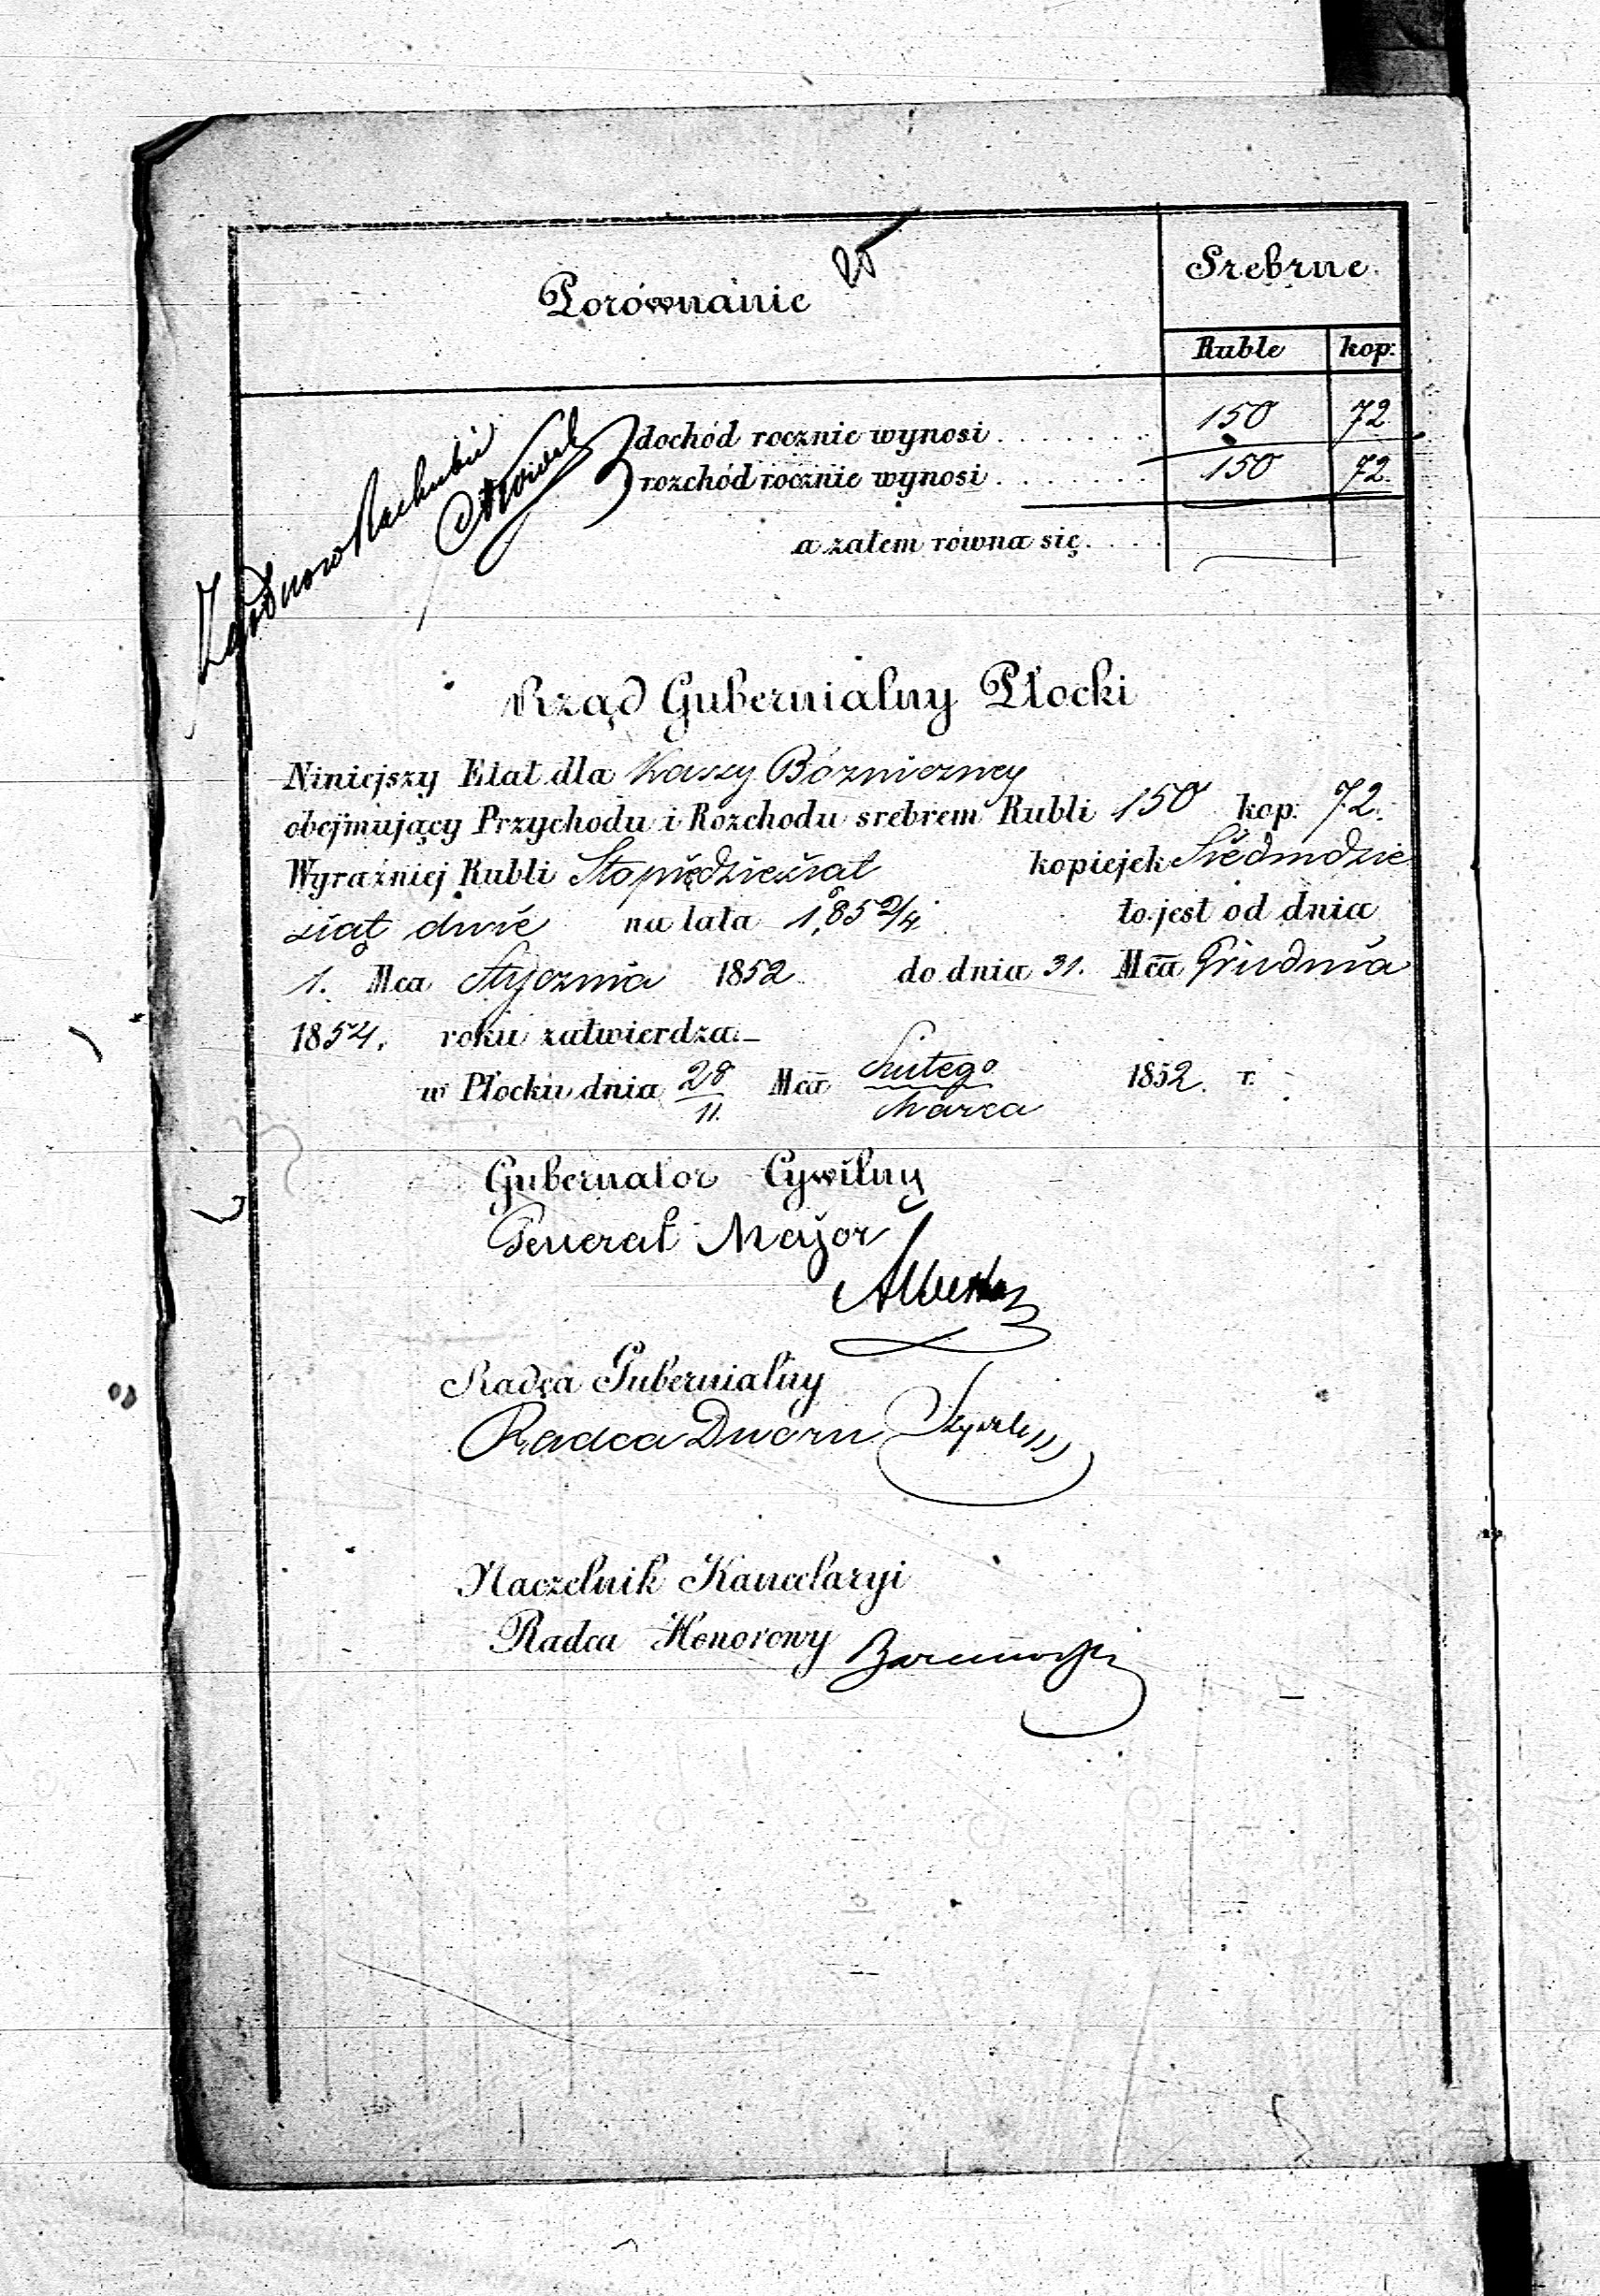 25
Porównanie
Srebrne
Ruble kop:
dochód rocznie wynosi . . . . . . . 150 72
rozchód rocznie wynosi . . . . . . . 150 72.
a zatem równa się. . . .
Rząd Gubernialny Płocki
Niniejszy Etat dla Kassy Bóżniczney
obejmujący Przychodu i Rozchodu srebrem Rubli 150 kop: 72.
Wyraźniej Rubli Stopiędziesiat kopiejek Siedmdzie
siąt dwie na lata 1852/4. to jest od dnia
1. Mca Stycznia 1852 do dnia 31. Mca Grudnia
1854. roku zatwierdza.–
w Płocku dnia 28/11. Mca Lutego/Marca 1852. r.
Gubernator Cywilny
Generał Major
Radca Gubernialny
Radca Dworu
Naczelnik Kancelaryi
Radca Honorowy